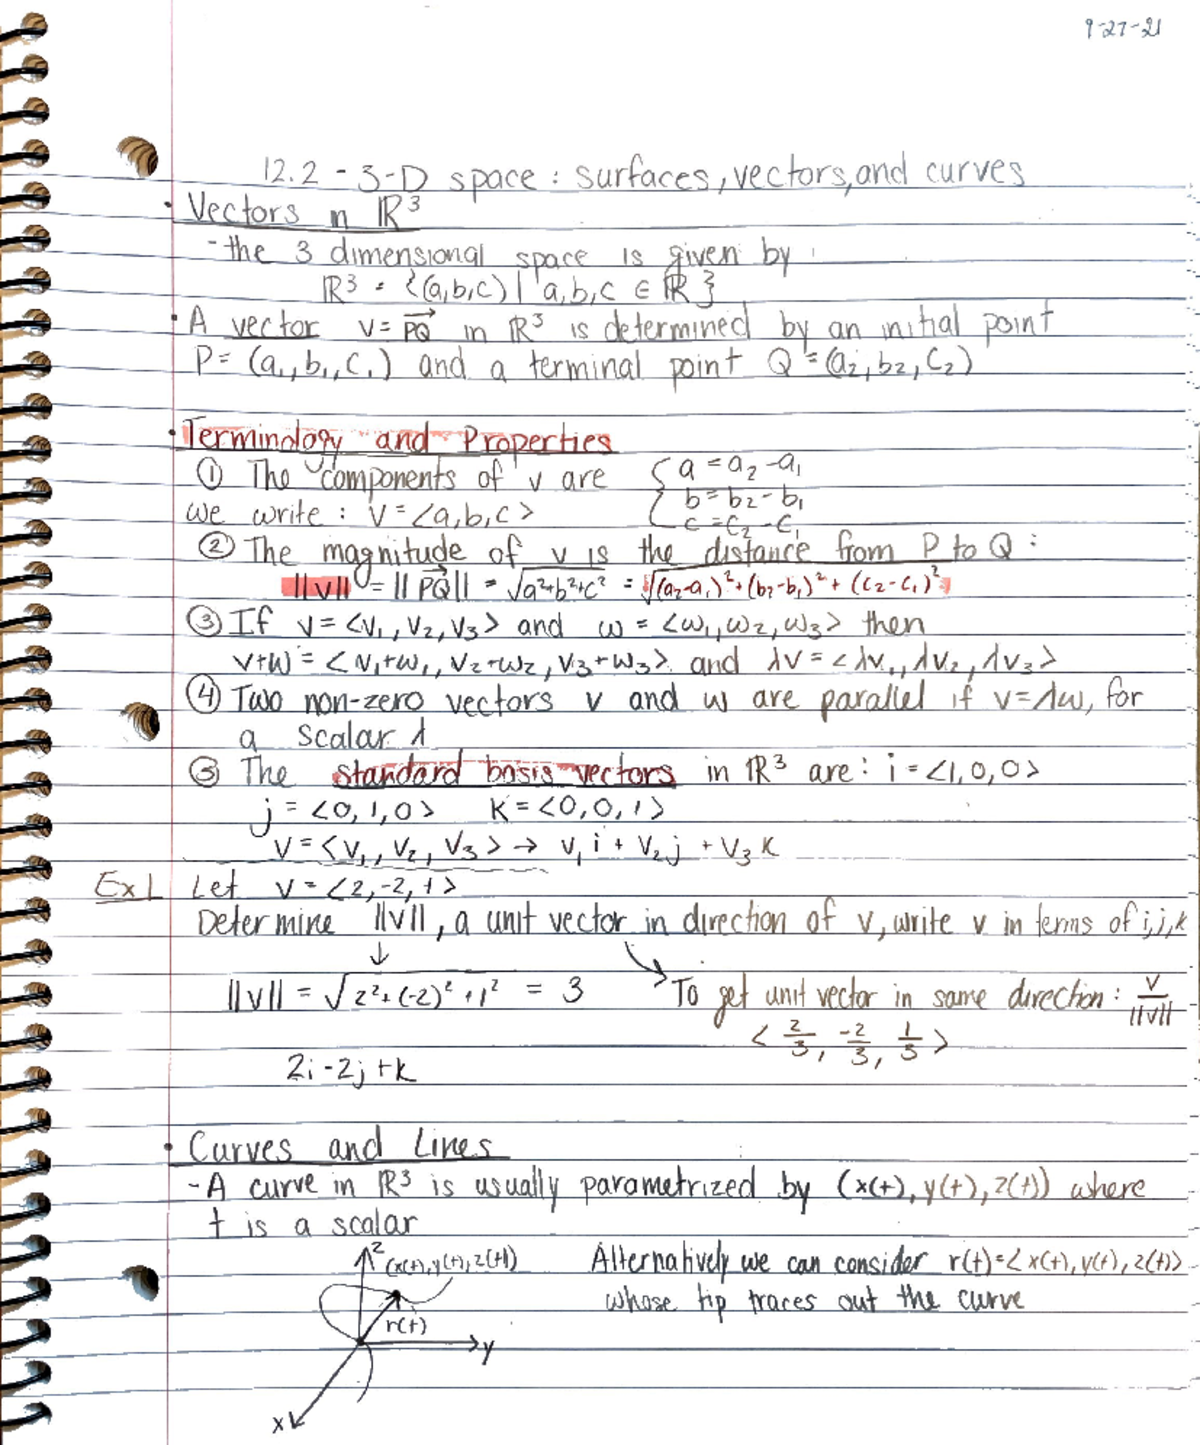 9-27-21
12.2 - 3-D space : surfaces, vectors, and curves
• Vectors in ℝ³
- the 3 dimensional space is given by
ℝ³ = {(a,b,c) | a,b,c ∈ ℝ}
• A vector v = PQ⃗ in ℝ³ is determined by an initial point
P = (a₁, b₁, c₁) and a terminal point Q = (a₂, b₂, c₂)
• Terminology and Properties
① The components of v are { a = a₂ - a₁
b = b₂ - b₁
we write : v = <a,b,c> c = c₂ - c₁
② The magnitude of v is the distance from P to Q :
||v|| = ||PQ⃗|| = √a²+b²+c² = √(a₂-a₁)² + (b₂-b₁)² + (c₂-c₁)²
③ If v = <v₁, v₂, v₃> and w = <w₁, w₂, w₃> then
v+w = <v₁+w₁, v₂+w₂, v₃+w₃> and λv = <λv₁, λv₂, λv₃>
④ Two non-zero vectors v and w are parallel if v = λw, for
a scalar λ
⑤ The standard basis vectors in ℝ³ are : i = <1,0,0>
j = <0,1,0> k = <0,0,1>
v = <v₁, v₂, v₃> → v₁i + v₂j + v₃k
Ex 1 Let v = <2,-2,1>
Determine ||v||, a unit vector in direction of v, write v in terms of i,j,k
↓
||v|| = √2²+(-2)²+1² = 3 To get unit vector in same direction : v/||v||
<2/3, -2/3, 1/3>
2i - 2j + k
• Curves and Lines
- A curve in ℝ³ is usually parametrized by (x(t), y(t), z(t)) where
t is a scalar
z (x(t), y(t), z(t)) Alternatively we can consider r(t) = <x(t), y(t), z(t)>
whose tip traces out the curve
r(t)
y
x